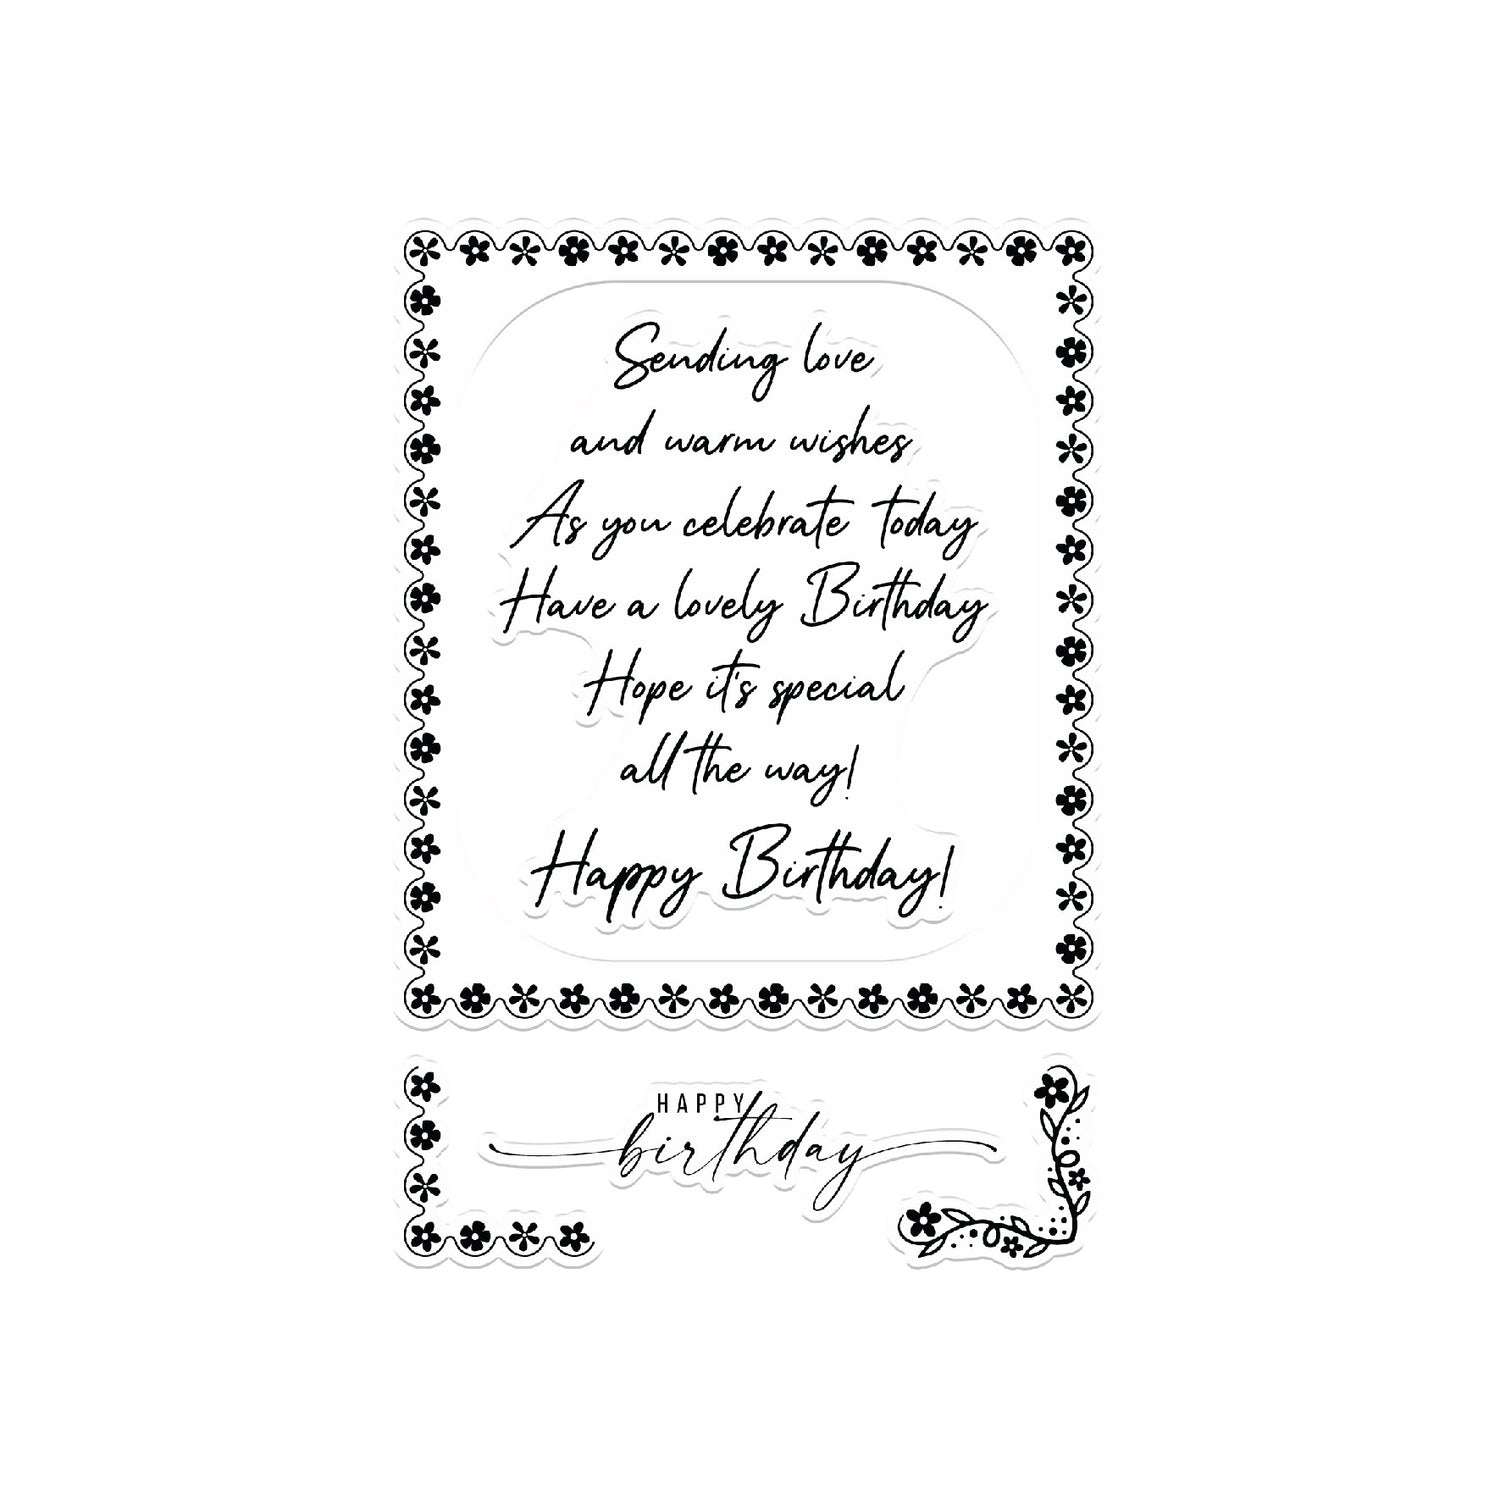 Sending love
and warm wishes
As you celebrate today
Have a lovely Birthday
Hope it's special
all the way!
Happy Birthday!
HAPPY
birthday